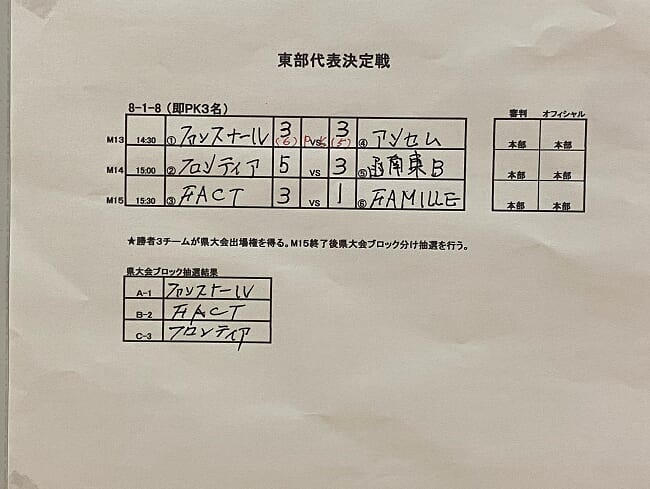 東部代表決定戦
8-1-8 (即PK3名)
審判 オフィシャル
M13 14:30 ① ファンスナール 3 (6) PK VS 3 (5) ④ アンセム 本部 本部
M14 15:00 ② フロンティア 5 VS 3 ⑤ 函南東B 本部 本部
M15 15:30 ③ FACT 3 VS 1 ⑥ FAMILLE 本部 本部
★勝者3チームが県大会出場権を得る。M15終了後県大会ブロック分け抽選を行う。
県大会ブロック抽選結果
A-1 ファンスナール
B-2 FACT
C-3 フロンティア